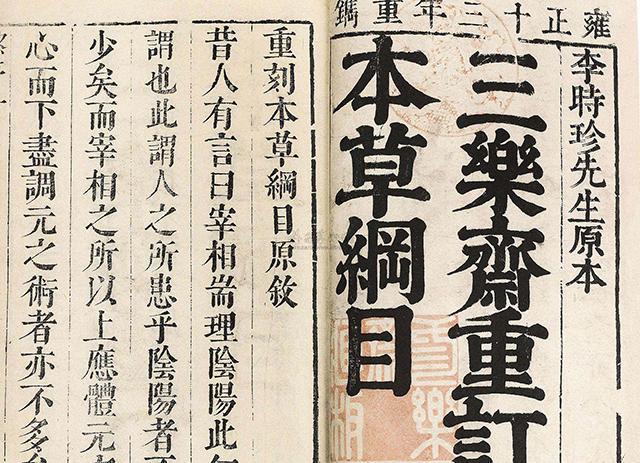 雍正十三年重鐫
李時珍先生原本
三樂齋重訂
本草綱目
重刻本草綱目原敘
昔人有言曰宰相耑理陰陽此
謂也此謂人之所患乎陰陽者
少矣而宰相之所以上應體元
心而下盡調元之術者亦不多